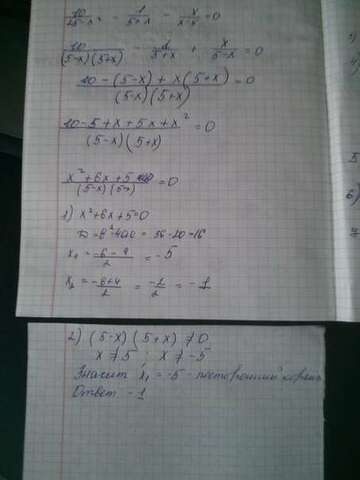 10/(25-x²) - 1/(5+x) - x/(x-5) = 0
10/((5-x)(5+x)) - 1/(5+x) + x/(5-x) = 0
(10-(5-x)+x(5+x))/((5-x)(5+x)) = 0
(10-5+x+5x+x²)/((5-x)(5+x)) = 0
(x²+6x+5)/((5-x)(5+x)) = 0
1) x²+6x+5=0
D = 36-20=16
x₁ = (-6-4)/2 = -5
x₂ = (-6+4)/2 = -2/2 = -1
2) (5-x)(5+x) ≠ 0
x ≠ 5 ; x ≠ -5
Значит x₁ = -5 - посторонний корень
Ответ -1